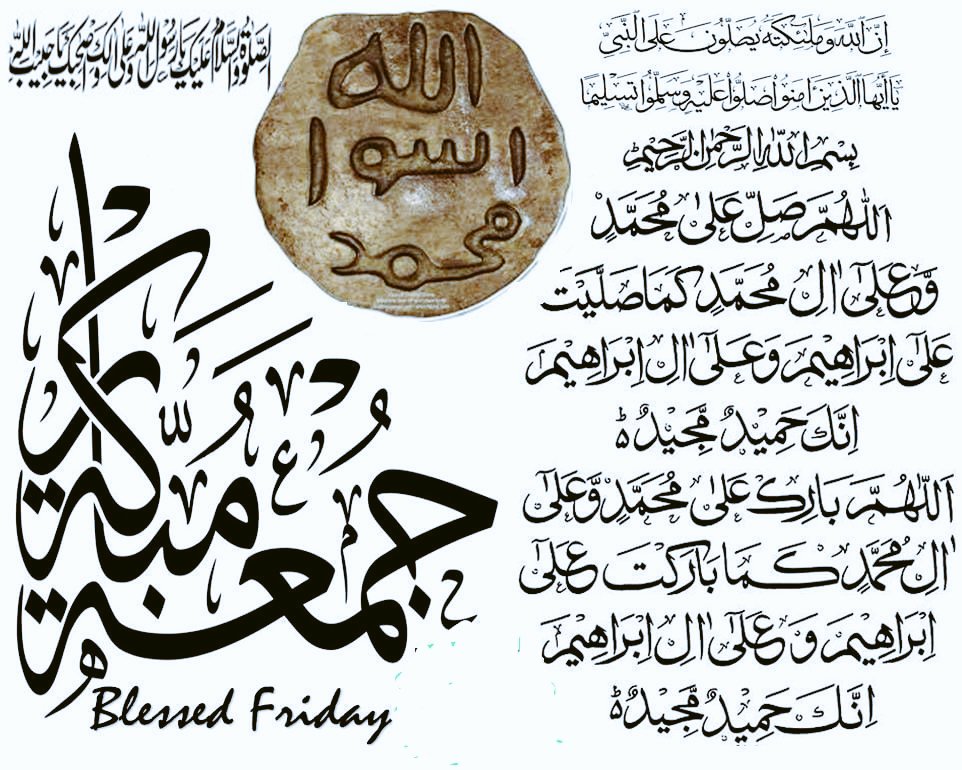 الصلوة والسلام عليك يا رسول الله وعلى آلك واصحابك يا حبيب الله
الله
رسول
محمد
إن الله وملئكته يصلون على النبي
يا أيها الذين ءامنوا صلوا عليه وسلموا تسليما
بسم الله الرحمن الرحيم
اللهم صل على محمد
وعلى ال محمد كما صليت
على ابراهيم وعلى ال ابراهيم
انك حميد مجيد
اللهم بارك على محمد وعلى
ال محمد كما باركت على
ابراهيم وعلى ال ابراهيم
انك حميد مجيد
جمعة مباركة
Blessed Friday